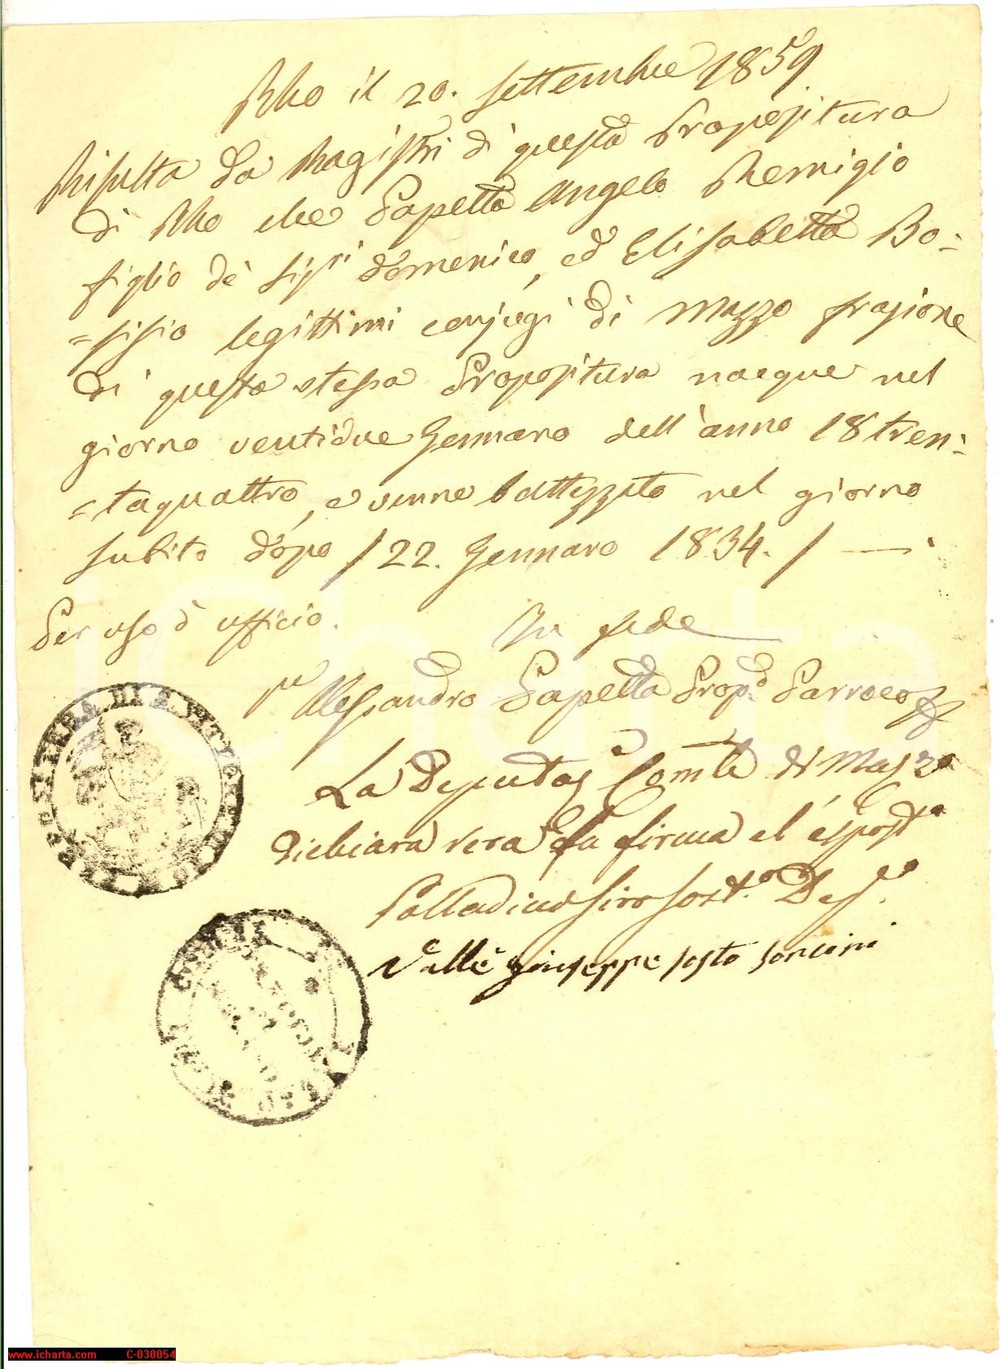 Rho il 20. Settembre 1859
Risulta dai Magistri di questa Propositura
di Rho che Papetta Angelo Remigio
figlio de' Sig.ri Domenico, ed Elisabetta Bo=
=sisio legittimi conjugi di Mazzo frazione
di questa stessa Propositura nacque nel
giorno ventidue Gennaro dell'anno 18tren=
=taquattro, e venne battezzato nel giorno
subito dopo / 22. Gennaro 1834. / —
Per uso d'ufficio.
In fede
Alessandro Papetta Prop.o Parroco
La Deputaz.e Com.le di Mazzo
dichiara vera la firma el' esposto
Palladino Siro Sost.o Dep.o
Vallè Giuseppe
PREPOSITURA DI S. VITTORE
www.icharta.com C-030054